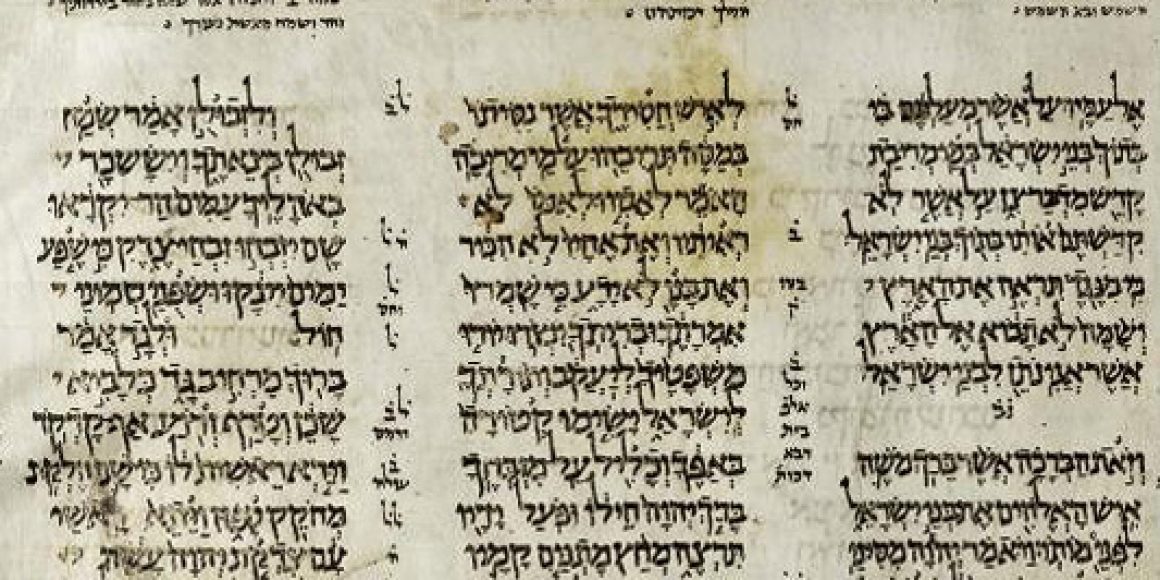 אל עמיו על אשר מעלתם בי
בתוך בני ישראל במי מריבת
קדש מדבר צן על אשר לא
קדשתם אותי בתוך בני ישראל
כי מנגד תראה את הארץ
ושמה לא תבוא אל הארץ
אשר אני נתן לבני ישראל
וזאת הברכה אשר ברך משה
איש האלהים את בני ישראל
לפני מותו ויאמר יהוה מסיני
לאיש חסידך אשר נסיתו
במסה תריבהו על מי מריבה
האמר לאביו ולאמו לא
ראיתיו ואת אחיו לא הכיר
ואת בנו לא ידע כי שמרו
אמרתך ובריתך ינצרו יורו
משפטיך ליעקב ותורתך
לישראל ישימו קטורה
באפך וכליל על מזבחך
ברך יהוה חילו ופעל ידיו
תרצה מחץ מתנים קמיו
ולזבולן אמר שמח
זבולן בצאתך ויששכר
באהליך עמים הר יקראו
שם יזבחו זבחי צדק כי שפע
ימים יינקו ושפני טמוני
חול ולגד אמר
ברוך מרחיב גד כלביא
שכן וטרף זרוע אף קדקד
וירא ראשית לו כי שם חלקת
מחקק ספון ויתא ראשי
עם צדקת יהוה עשה